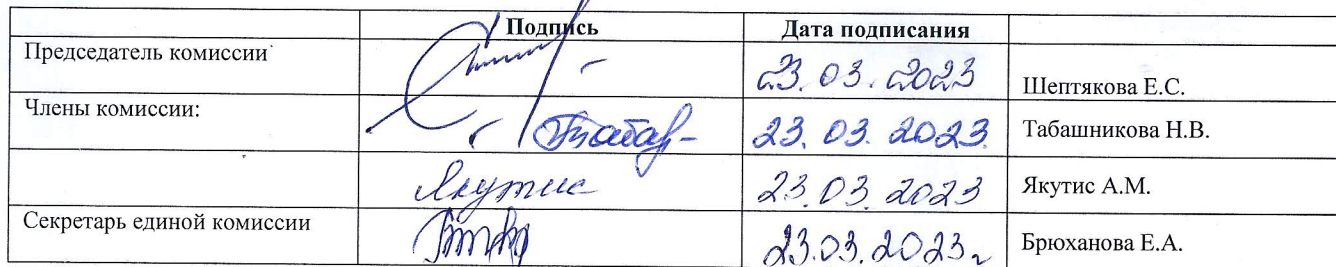 Подпись Дата подписания
Председатель комиссии 23.03.2023 Шептякова Е.С.
Члены комиссии: Табар- 23.03.2023. Табашникова Н.В.
Якутис 23.03.2023 Якутис А.М.
Секретарь единой комиссии 23.03.2023г Брюханова Е.А.